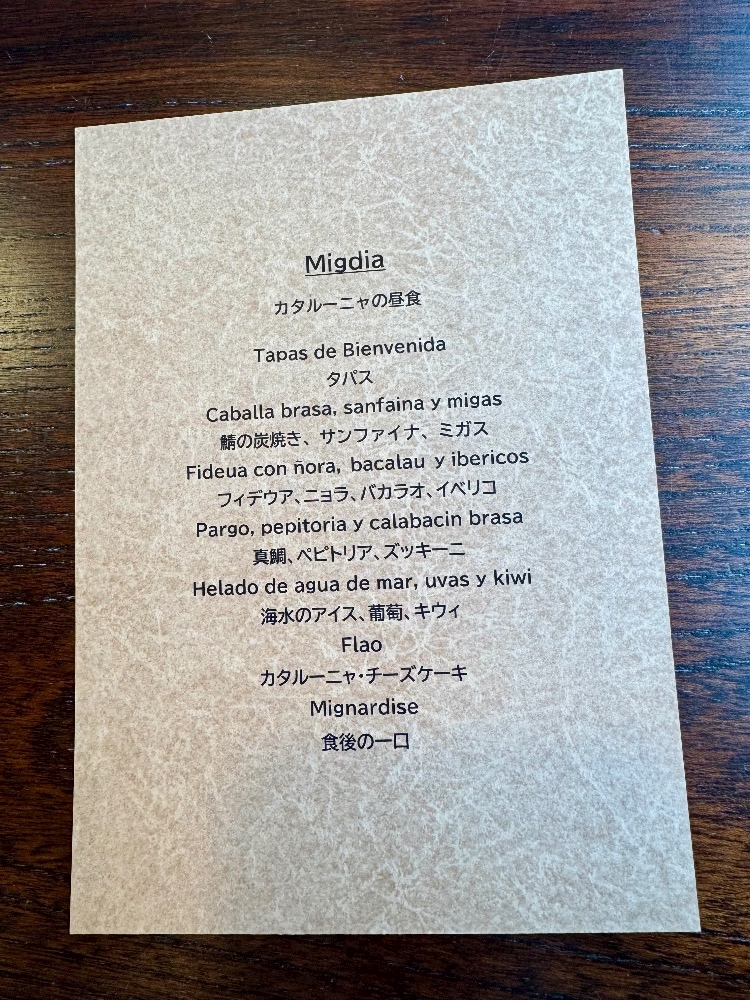 Migdia
カタルーニャの昼食
Tapas de Bienvenida
タパス
Caballa brasa, sanfaina y migas
鯖の炭焼き、サンファイナ、ミガス
Fideua con ñora, bacalau y ibericos
フィデウア、ニョラ、バカラオ、イベリコ
Pargo, pepitoria y calabacin brasa
真鯛、ペピトリア、ズッキーニ
Helado de agua de mar, uvas y kiwi
海水のアイス、葡萄、キウィ
Flao
カタルーニャ・チーズケーキ
Mignardise
食後の一口